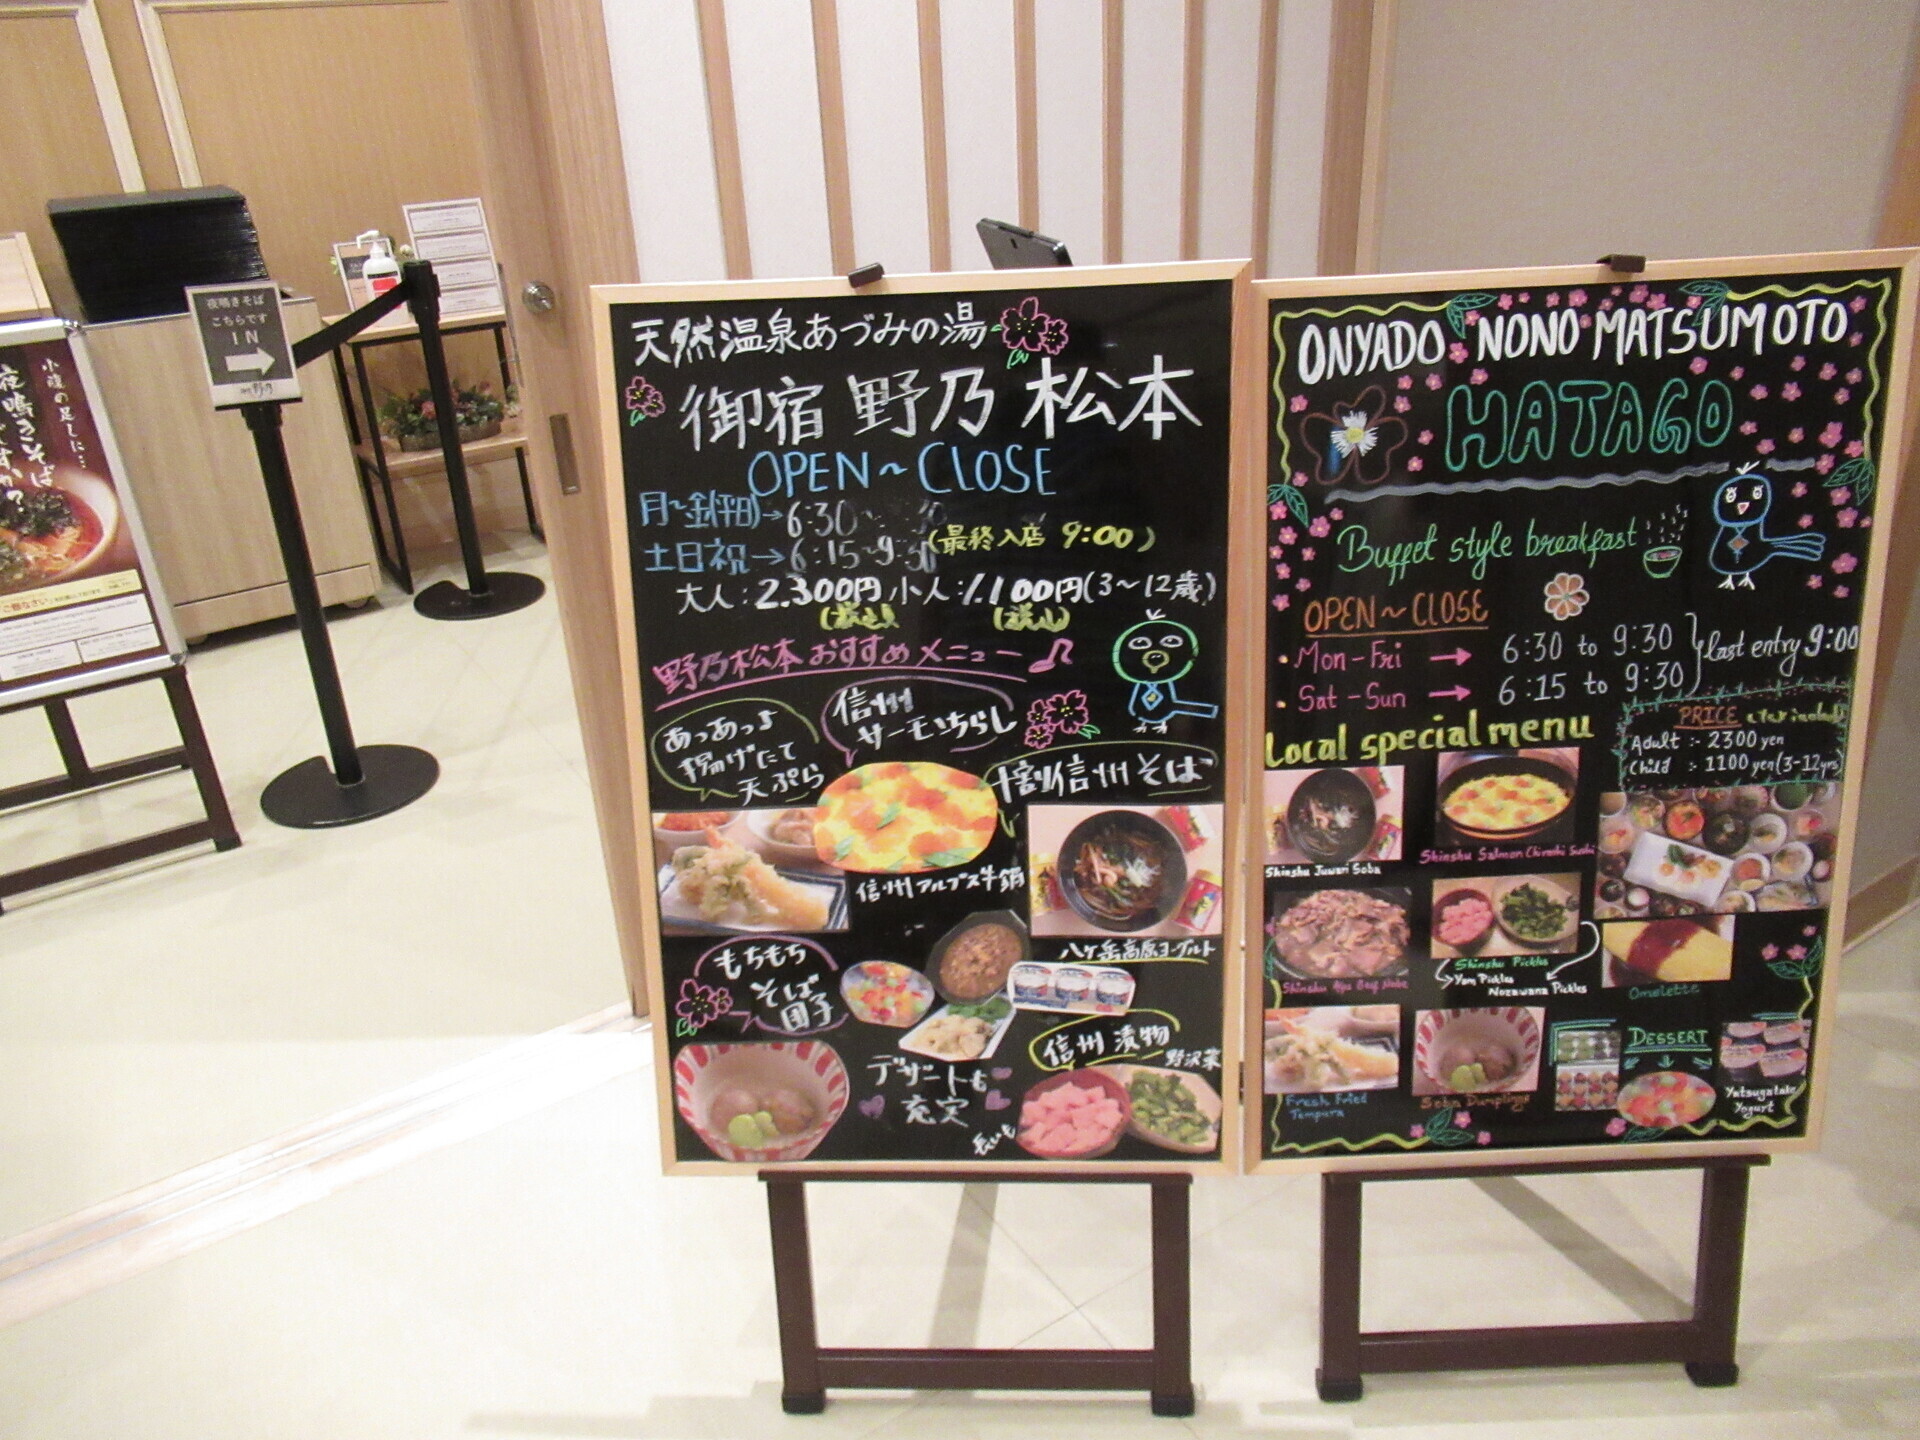 夜鳴きそば
こちらです
IN
野乃
小腹の足しに…
夜鳴きそば
天然温泉あづみの湯
御宿 野乃 松本
OPEN~CLOSE
月~金(平日)→6:30~
土日祝→6:15~9:30
(最終入店 9:00)
大人:2.300円 小人:1.100円(3~12歳)
(税込) (税込)
野乃松本おすすめメニュー
あっあっよ
揚げたて
天ぷら
信州
サーモンちらし
十割信州そば
信州アルプス牛鍋
八ヶ岳高原ヨーグルト
もちもち
そば
団子
信州 漬物
野沢菜
デザートも
充実
長いも
ONYADO NONO MATSUMOTO
HATAGO
Buffet style breakfast
OPEN~CLOSE
Mon-Fri → 6:30 to 9:30
Sat-Sun → 6:15 to 9:30
last entry 9:00
Local special menu
PRICE
Adult :- 2300 yen
Child :- 1100 yen (3-12yrs)
Shinshu Juwari Soba
Shinshu Salmon Chirashi Sushi
Shinshu Alps Beef Nabe
Shinshu Pickles
Yam Pickles
Nozawana Pickles
Omelette
Fresh Fried
Tempura
Soba Dumplings
DESSERT
Yatsugatake
Yogurt